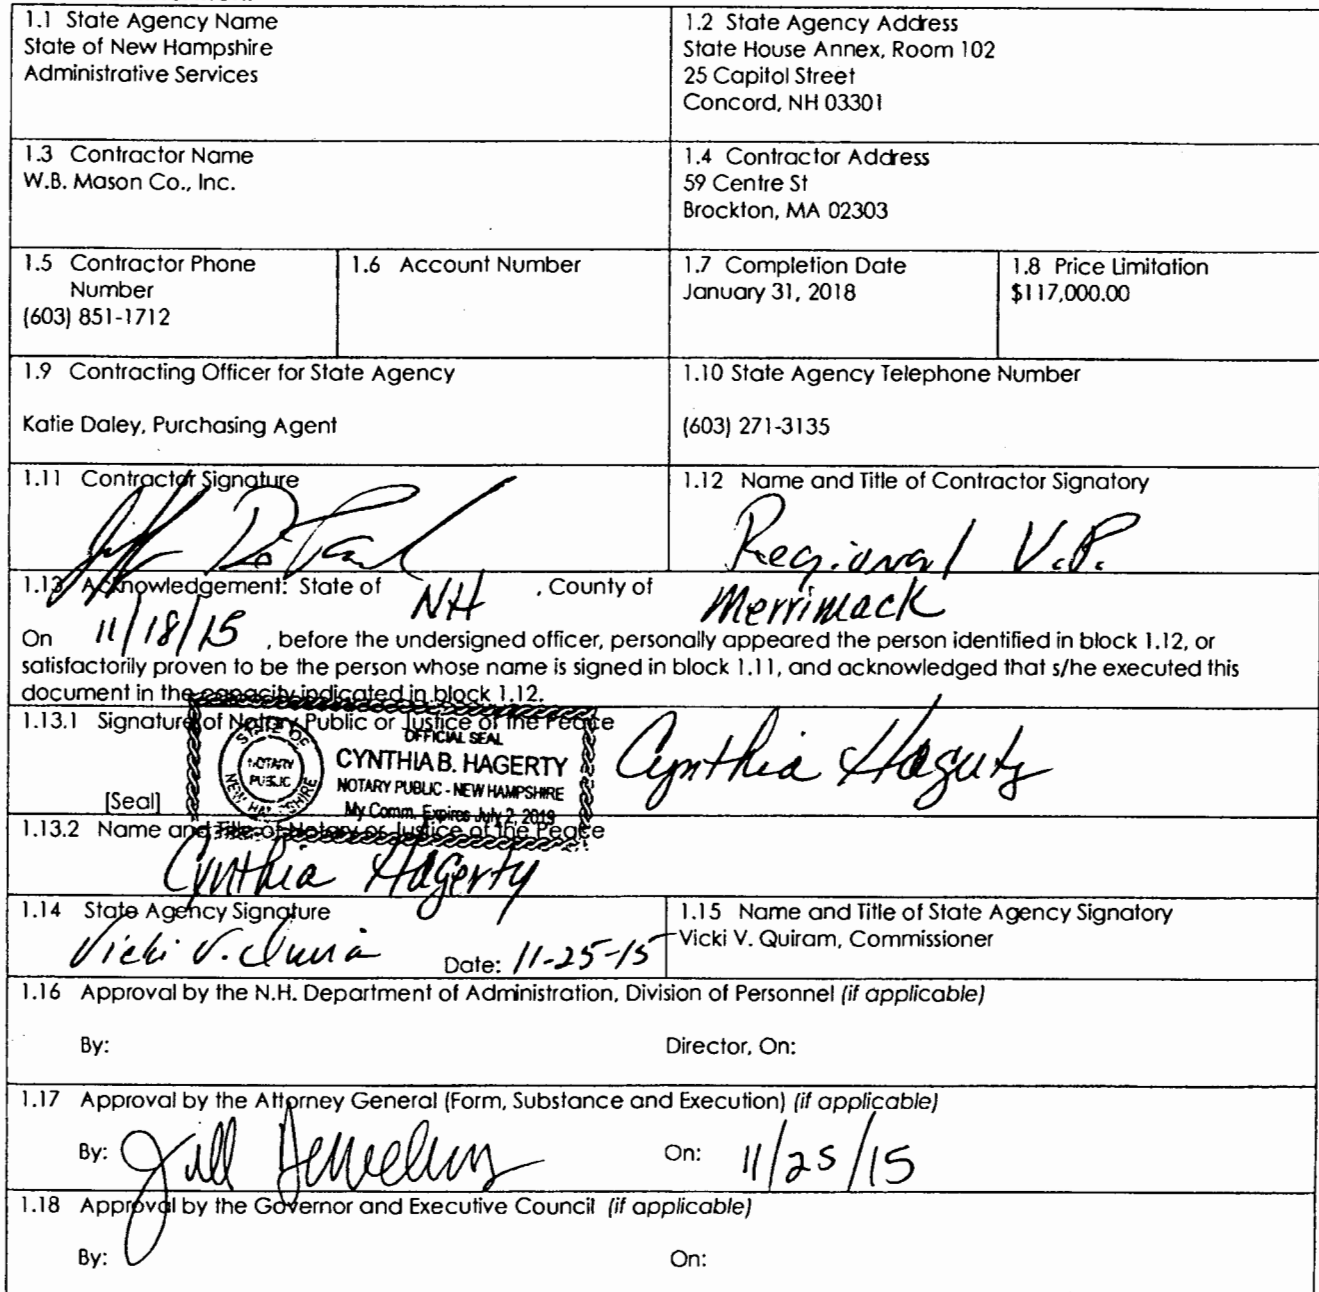 1.1 State Agency Name
State of New Hampshire
Administrative Services
1.2 State Agency Address
State House Annex, Room 102
25 Capitol Street
Concord, NH 03301
1.3 Contractor Name
W.B. Mason Co., Inc.
1.4 Contractor Address
59 Centre St
Brockton, MA 02303
1.5 Contractor Phone
Number
(603) 851-1712
1.6 Account Number
1.7 Completion Date
January 31, 2018
1.8 Price Limitation
$117,000.00
1.9 Contracting Officer for State Agency
Katie Daley, Purchasing Agent
1.10 State Agency Telephone Number
(603) 271-3135
1.11 Contractor Signature
1.12 Name and Title of Contractor Signatory
Regional V.P.
1.13 Acknowledgement: State of NH , County of Merrimack
On 11/18/15 , before the undersigned officer, personally appeared the person identified in block 1.12, or
satisfactorily proven to be the person whose name is signed in block 1.11, and acknowledged that s/he executed this
document in the capacity indicated in block 1.12.
1.13.1 Signature of Notary Public or Justice of the Peace
OFFICIAL SEAL
CYNTHIA B. HAGERTY
NOTARY PUBLIC - NEW HAMPSHIRE
My Comm. Expires July 2, 2019
STATE OF NEW HAMPSHIRE
NOTARY
PUBLIC
Cynthia Hagerty
[Seal]
1.13.2 Name and Title of Notary or Justice of the Peace
Cynthia Hagerty
1.14 State Agency Signature
Vicki V. Date: 11-25-15
1.15 Name and Title of State Agency Signatory
Vicki V. Quiram, Commissioner
1.16 Approval by the N.H. Department of Administration, Division of Personnel (if applicable)
By: Director, On:
1.17 Approval by the Attorney General (Form, Substance and Execution) (if applicable)
By: Jill On: 11/25/15
1.18 Approval by the Governor and Executive Council (if applicable)
By: On: